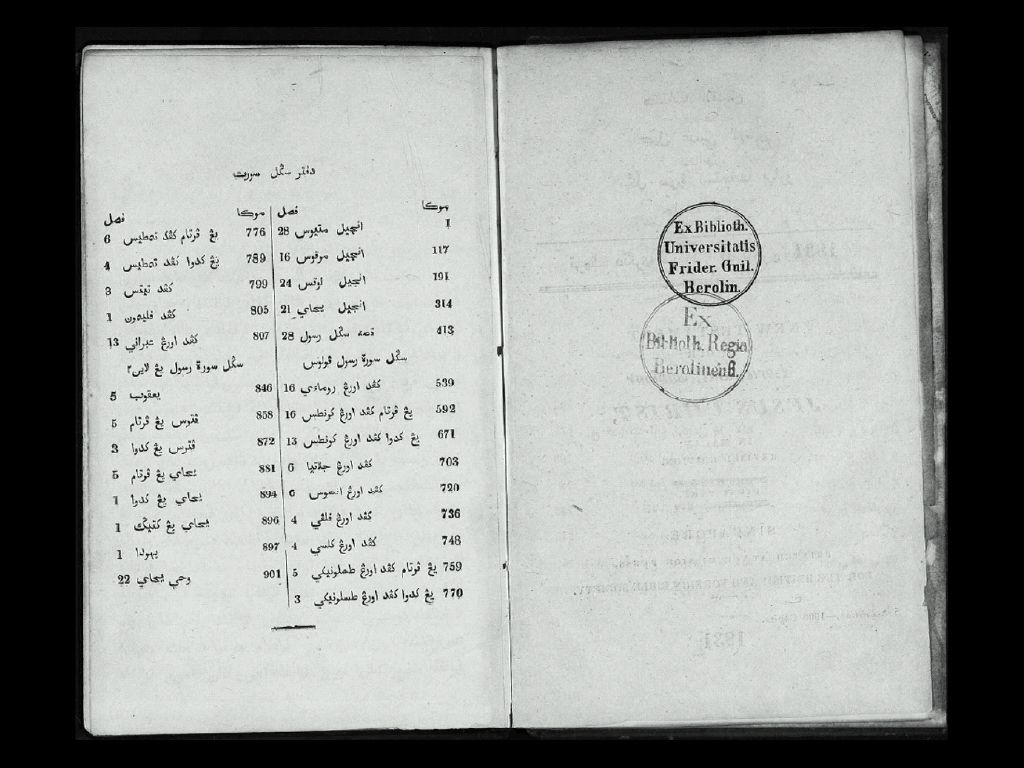 دفتر سڬل سورت
موکا فصل
1 انجيل متيوس 28
117 انجيل مرقوس 16
191 انجيل لوقس 24
314 انجيل يحياي 21
413 قصه سڬل رسول 28
سڬل سورة رسول ڤولوس
539 کڤد اورڠ روماءي 16
592 يڠ ڤرتام کڤد اورڠ کورنطس 16
671 يڠ کدوا کڤد اورڠ کورنطس 13
703 کڤد اورڠ جلاتيا 6
720 کڤد اورڠ افسوس 6
736 کڤد اورڠ فلڤي 4
748 کڤد اورڠ کلسي 4
759 يڠ ڤرتام کڤد اورڠ طسلونيکي 5
770 يڠ کدوا کڤد اورڠ طسلونيکي 3
موکا فصل
776 يڠ ڤرتام کڤد تمطيس 6
789 يڠ کدوا کڤد تمطيس 4
799 کڤد تيتس 3
805 کڤد فليمون 1
807 کڤد اورڠ عبراني 13
سڬل سورة رسول يڠ لاين٢
846 يعقوب 5
858 ڤترس يڠ ڤرتام 5
872 ڤترس يڠ کدوا 3
881 يحياي يڠ ڤرتام 5
894 يحياي يڠ کدوا 1
896 يحياي يڠ کتيڬ 1
897 يهودا 1
901 وحي يحياي 22
Ex Biblioth.
Universitatis
Frider. Guil.
Berolin.
Ex
Biblioth. Regia
Berolinenß.